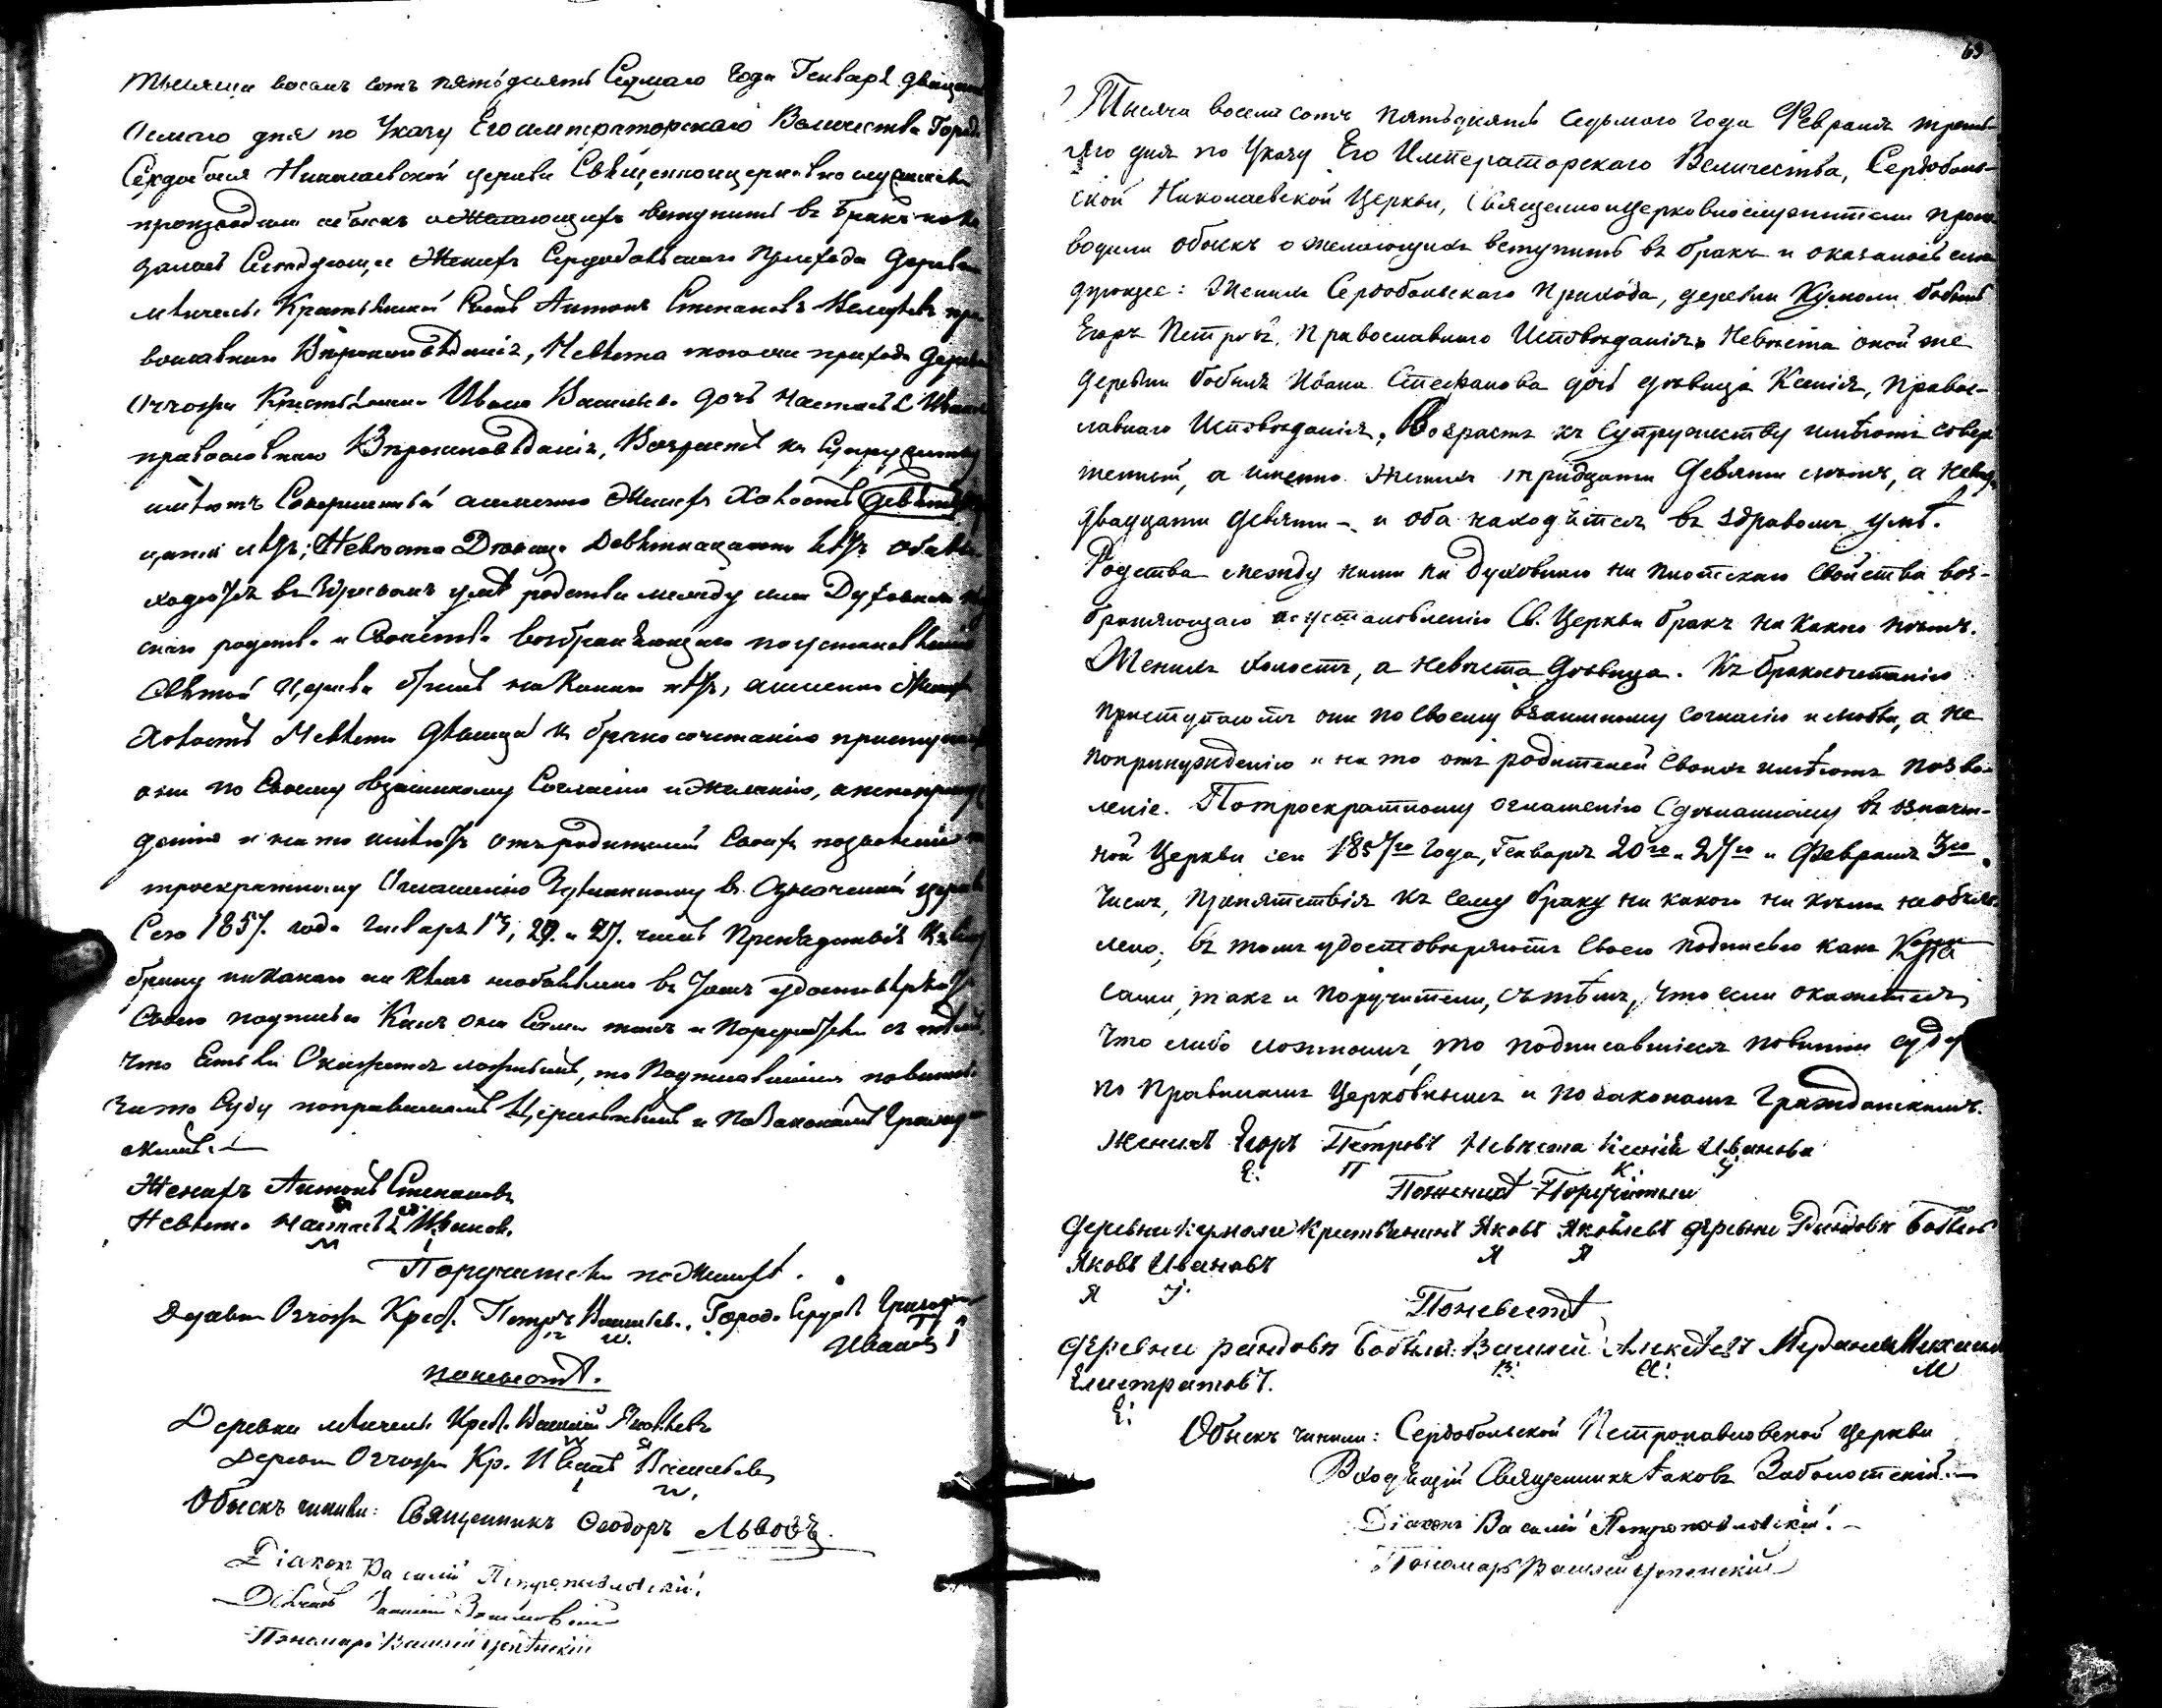 тысяща восемъ сотъ пятьдесятъ Седмаго Года Генваря
дня по Указу Его императорскаго Величества Города
Сердоболя Николаевской церкви Священноицерковнослужители
производили обыскъ о желающихъ вступить въ бракъ и ока
залось Следующее Женихъ Сердобольскаго Прихода Деревни
Антонъ Степановъ пра
вославнаго Вероисповѣданія, Невѣста того же прихода Деревни
Ивана Васильева дочь Настасья Иванова
православнаго Вероисповѣданія, Возрастъ къ Супружеству
имѣютъ Совершенный а именно Женихъ Холостъ
лѣтъ; Невѣста Девица Девятнацати лѣтъ оба на
ходятся въ здравомъ умѣ родства между ими Духовнаго
родства и Свойства возбраняющаго по установленію
Святой Церкви бракъ никакаго нѣтъ, а именно Женихъ
Холостъ Невѣста дѣвица къ бракосочетанію приступаютъ
они по Своему взаимному Согласію и желанію, а не по принуж
денію и на то имѣютъ отъ родителей Своихъ позволеніе
троекратному Оглашенію Зделанному въ Означенной церкви
Сего 1857. года Генваря 13, 20. и 27. числъ Препядствія къ сему
браку никакаго ни кѣмъ необъявлено въ чомъ удостовѣряютъ
Своею подписью Какъ они Сами такъ и Поручители съ тѣмъ
что Естьли Окажется ложнымъ, то Подписавшіися повинны
за то Суду по правиламъ Церковнымъ и по Законамъ Граждан
скимъ. —
Женихъ Антонъ Степановъ
Невѣста Настасья Иванов.
Поручители по Женихѣ.
Деревни Крес. Петръ Васильев. Город. Сердоб. Григорій
Ивановъ
по невестѣ.
Деревни Крес. Василій Яковлевъ
Деревни Кр. Иванъ Васильевъ
Обыскъ чинили: Священникъ Ѳеодоръ Львовъ.
Діаконъ Василій Петропавловскій.
Пономарь Василій Успенскій
69
Тысяча восемь сотъ пятьдесятъ седьмаго года Февраля треть-
яго дня по Указу Его Императорскаго Величества, Сердоболь-
ской Николаевской Церкви, Священноицерковнослужители произ
водили обыскъ о желающихъ вступить въ бракъ и оказалось слѣ
дующее: Женихъ Сердобольскаго Прихода, деревни Кумоли бобыль
Егоръ Петровъ, Православнаго Исповѣданія, Невѣста оной же
деревни бобыля Ивана Стефанова дочь дѣвица Ксенія, Правос-
лавнаго Исповѣданія. Возрастъ къ Супружеству имѣютъ совер
шенный, а именно женихъ тридцати девяти лѣтъ, а невѣс.
двадцати девяти — и оба находятся въ здравомъ умѣ.
Родства между ними ни духовнаго ни плотскаго свойства воз-
браняющаго по установленію Св. Церкви бракъ никакого нѣтъ.
Женихъ холостъ, а невѣста дѣвица. Къ бракосочетанію
приступаютъ они по своему взаимному согласію и любви, а не
по принужденію и на то отъ родителей своихъ имѣютъ позво-
леніе. По троекратному оглашенію сдѣланному въ означен-
ной Церкви сего 1857го Года, Генваря 20го и 27го и Февраля 3го
числъ, препятствія къ сему браку ни какого ни кѣмъ необъяв
лено; въ томъ удостовѣряютъ своею подписью какъ
сами, такъ и поручители, съ тѣмъ, что если окажется
что либо ложнымъ, то подписавшіеся повинны суду
по Правиламъ Церковнымъ и по законамъ Гражданскимъ.
Женихъ Егоръ Петровъ Невѣста Ксенія Иванова
Е. П К. И
По женихѣ Поручители
деревни Кумоли Крестьянинъ Яковъ Яковлевъ деревни Рандовы Бобыль
Я Я
Яковъ Ивановъ
Я И.
По невестѣ
деревни рандовы бобыля: Василій Алексѣевъ Михаила
В. А. М
Елистратовъ.
Е.
Обыскъ чинили: Сердобольской Петропавловской Церкви
Священникъ Іаковъ Заболотскій. —
Діаконъ Василій Петропавловскій. —
Пономарь Василій Успенскій